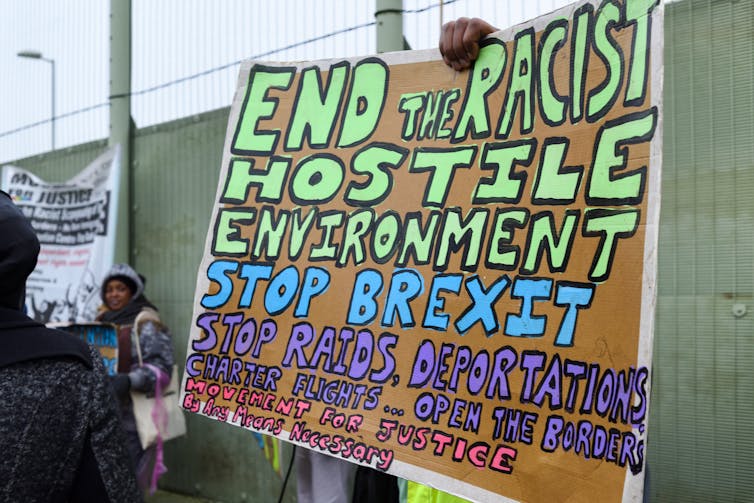 END THE RACIST
HOSTILE
ENVIRONMENT
STOP BREXIT
STOP RAIDS, DEPORTATIONS,
CHARTER FLIGHTS... OPEN THE BORDERS
MOVEMENT FOR JUSTICE
By Any Means Necessary
FOR JUSTICE